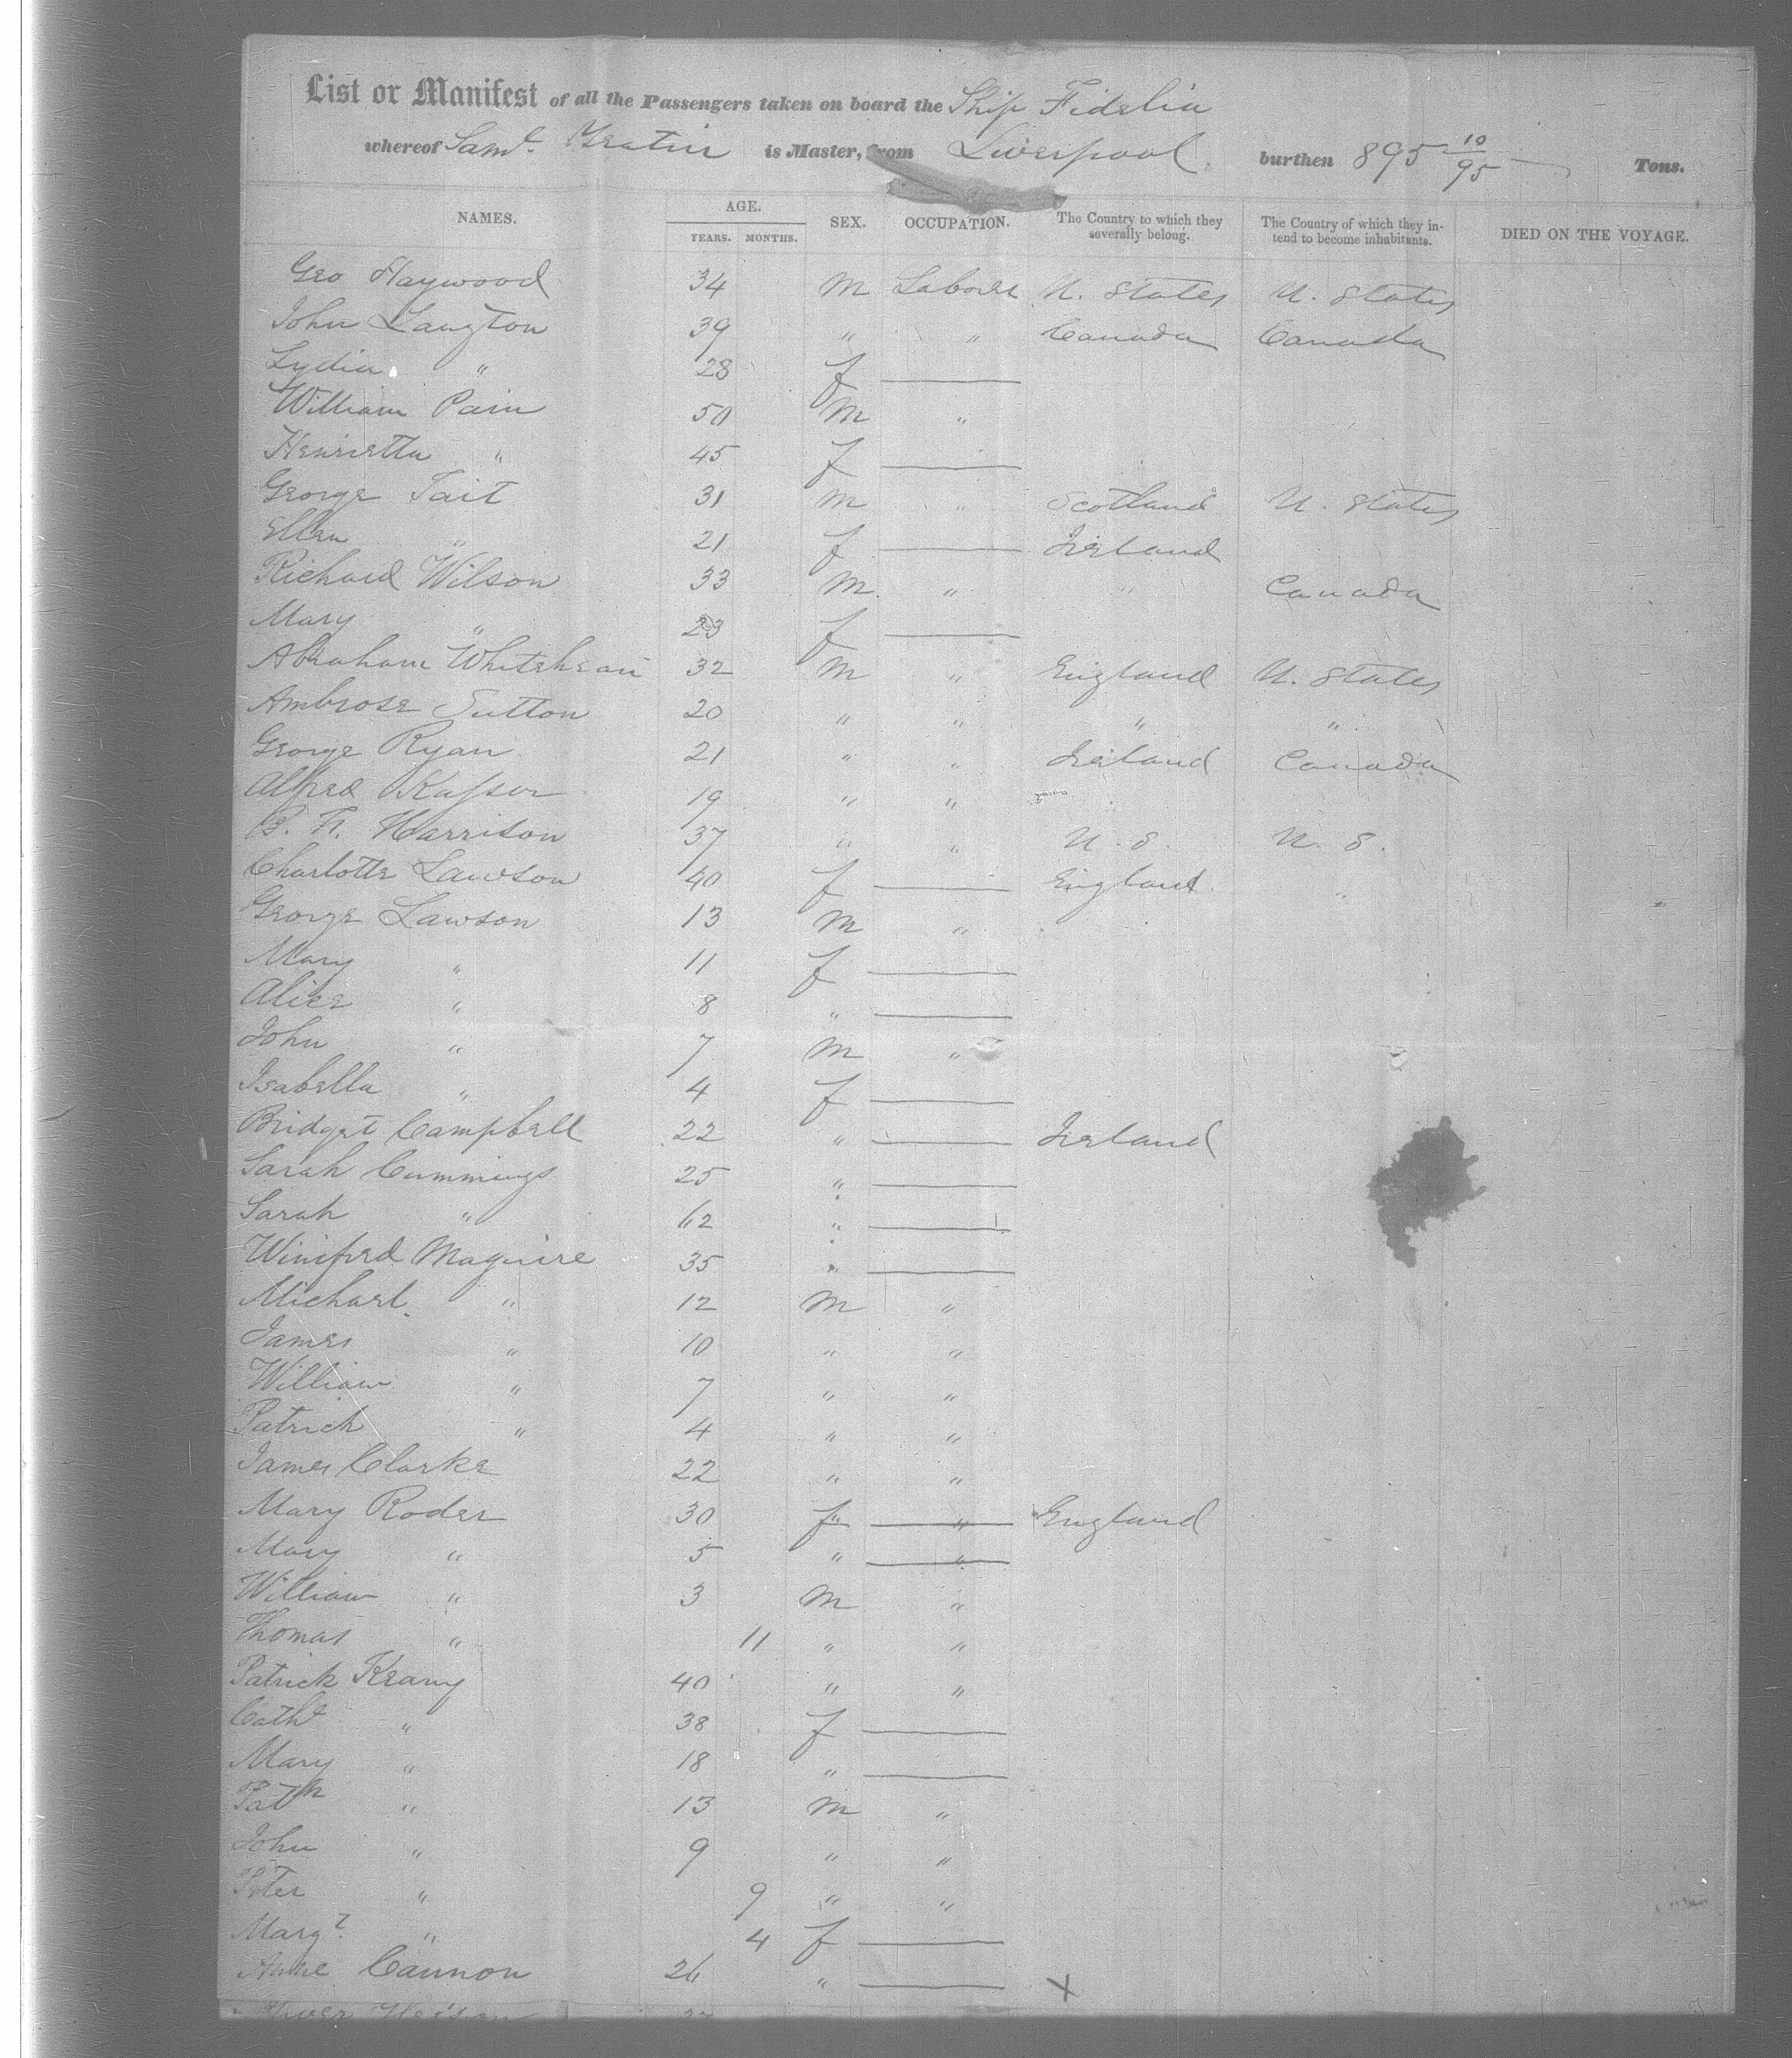 List or Manifest of all the Passengers taken on board the Ship Fidelia
whereof Saml. is Master, from Liverpool burthen 895 10/95 Tons.
NAMES. AGE. YEARS. MONTHS. SEX. OCCUPATION. The Country to which they severally belong. The Country of which they intend to become inhabitants. DIED ON THE VOYAGE.
Geo Haywood 34 M Laborer U. States U. States
John Langton 39 " " Canada Canada
Lydia " 28 f
William Pain 50 M "
Henrietta " 45 f
George Tait 31 M " Scotland U. States
Ellen " 21 f Ireland
Richard Wilson 33 M " " Canada
Mary " 23 f
Abraham Whitehead 32 M " England U. States
Ambrose Sutton 20 " " " "
George Ryan 21 " " Ireland Canada
Alfred 19 " "
Harrison 37 " " U. S. U. S.
Charlotte Lawson 40 f England "
George Lawson 13 M "
Mary " 11 f
Alice " 8 "
John " 7 M "
Isabella " 4 f
Bridget Campbell 22 " Ireland
Sarah Cummings 25 "
Sarah " 62 "
Winifred Maguire 35 "
Michael " 12 M "
James " 10 " "
William " 7 " "
Patrick " 4 " "
James Clarke 22 " "
Mary Roder 30 f " England
Mary " 5 " "
William " 3 M "
Thomas " 11 " "
Patrick Keany 40 " "
Cath " 38 f
Mary " 18 "
Patk " 13 M "
John " 9 " "
Peter " 9 " "
Margt. " 4 f
Anne Cannon 26 " X